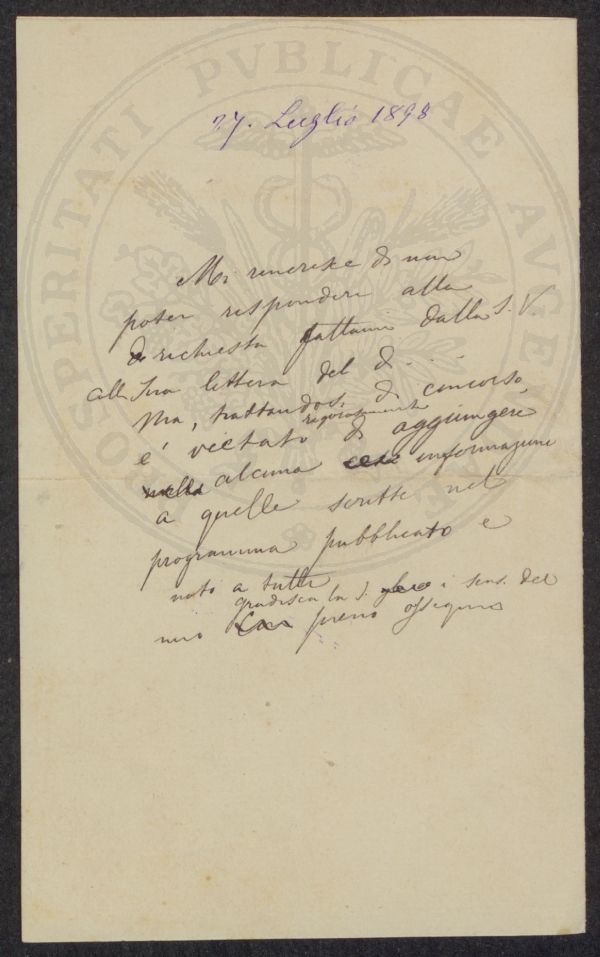 PROSPERITATI PVBLICAE AVGENDAE
27. Luglio 1898
Mi rincresce di non
poter rispondere alla
richiesta fattami dalla S. V.
colla Sua lettera del d...
Ma, trattandosi di concorso,
rigorosamente
è vietato di aggiungere
alcuna informazione
a quelle scritte nel
programma pubblicato e
noto a tutti
gradisca la S. i sens. del
mio pieno ossequio